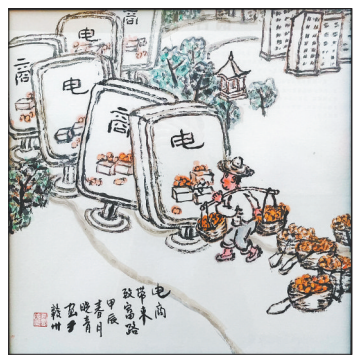 商
电
商
电
商
电
电商
带来
致富路
甲辰
春月
晓青
画于
赣州